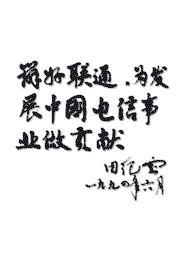 办好联通,为发
展中國电信事
业做贡献
田纪云
一九九四年六月